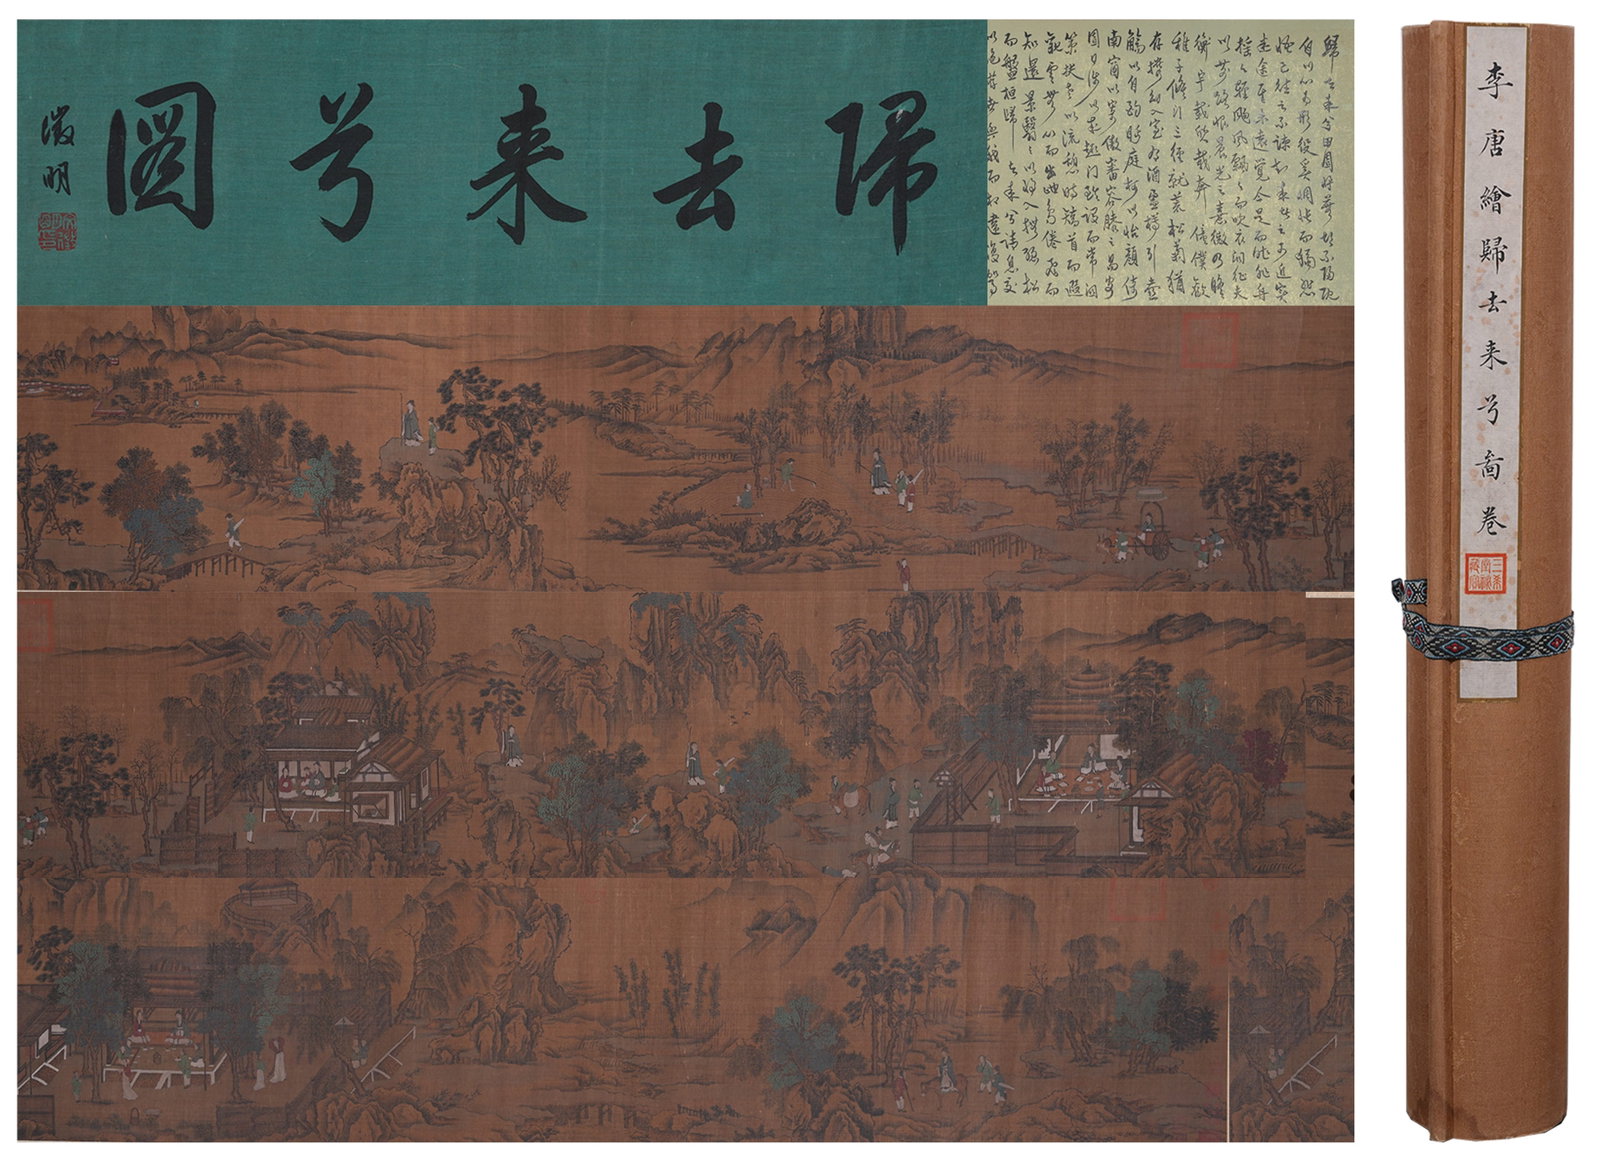 歸去来兮圖
徵明
歸去来兮田園將蕪胡不歸既
自以心為形役奚惆悵而獨悲
悟已往之不諫知来者之可追實
迷途其未遠覺今是而昨非舟
搖々輕颺風飄々而吹衣問征夫
以前路恨晨光之熹微乃瞻
衡宇載欣載奔僮僕歡
稚子候門三徑就荒松菊猶
存攜幼入室有酒盈樽引壺
觴以自酌眄庭柯以怡顏倚
南窗以寄傲審容膝之易安
園日涉以成趣門雖設而常關
策扶老以流憩時矯首而遐
觀雲無心而出岫鳥倦飛而
知還景翳々以將入撫孤松
而盤桓歸去来兮請息交
以絕游世與我而相違復駕
李唐繪歸去来兮啚卷